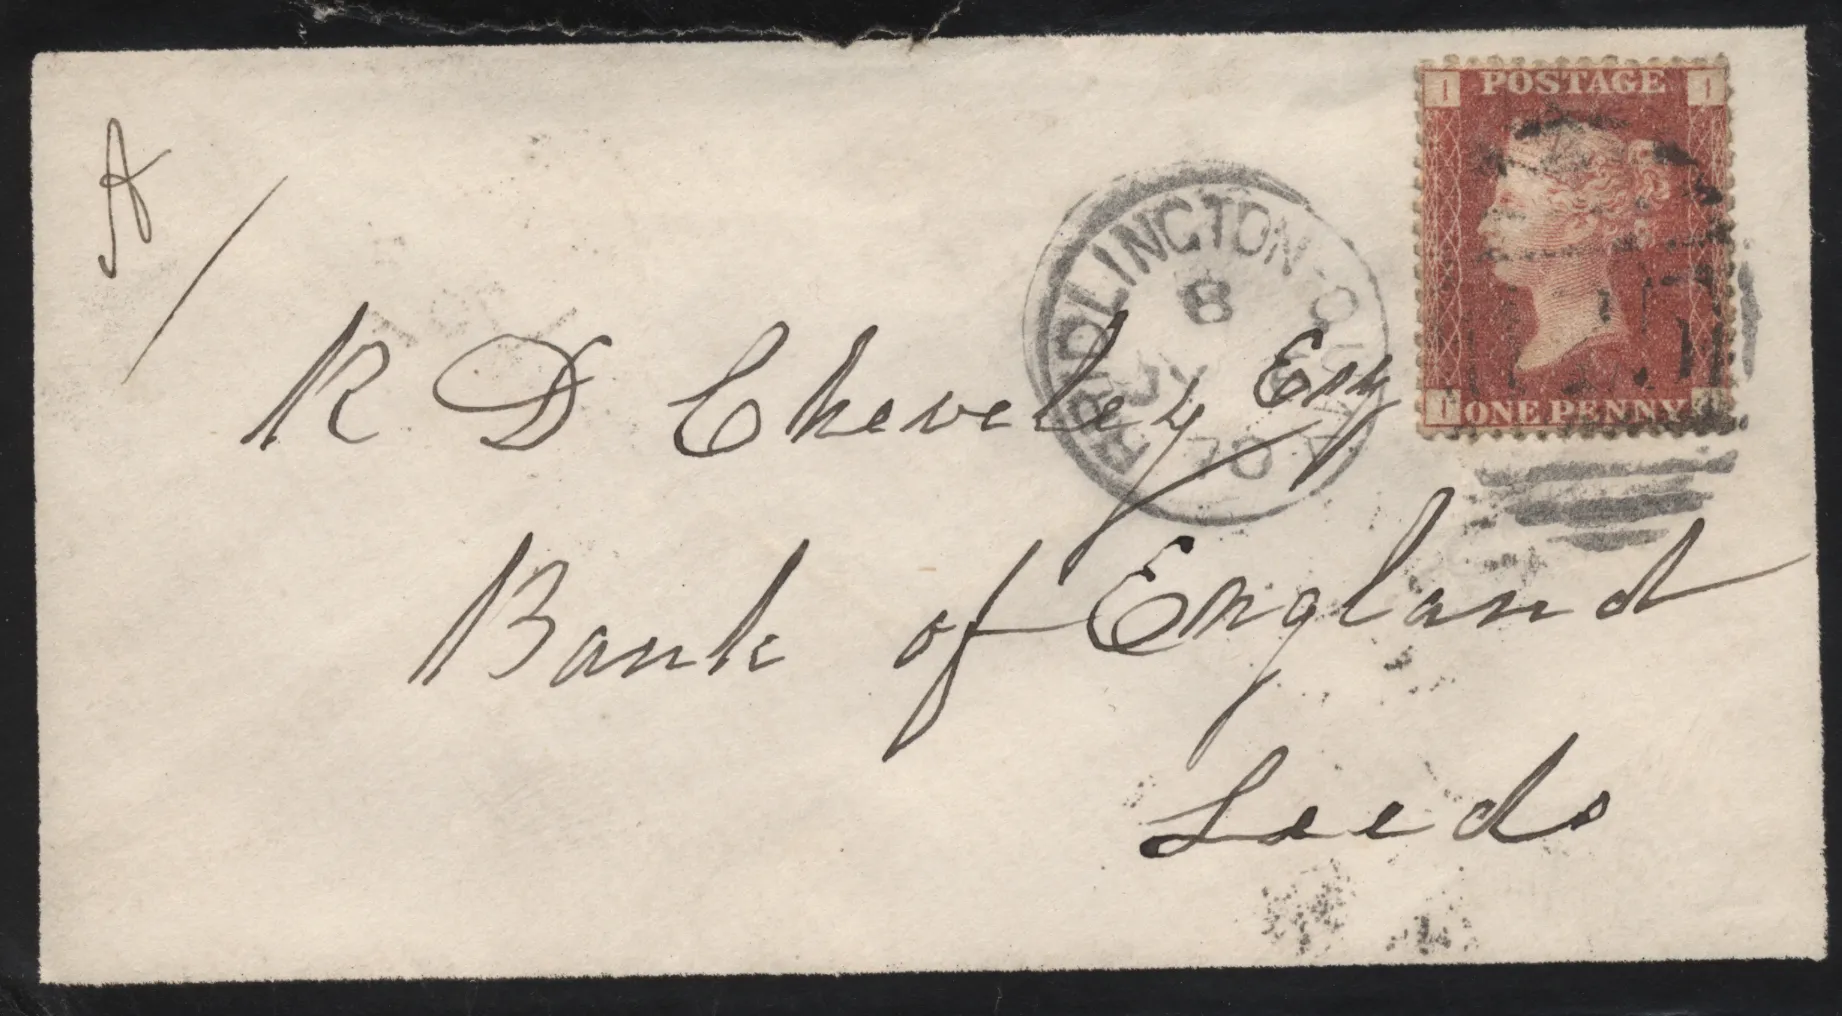 POSTAGE
I I
I
ONE PENNY
BRIDLINGTON-QUAY
8
JY
70
A/
R D Cheveley Esq
Bank of England
Leeds